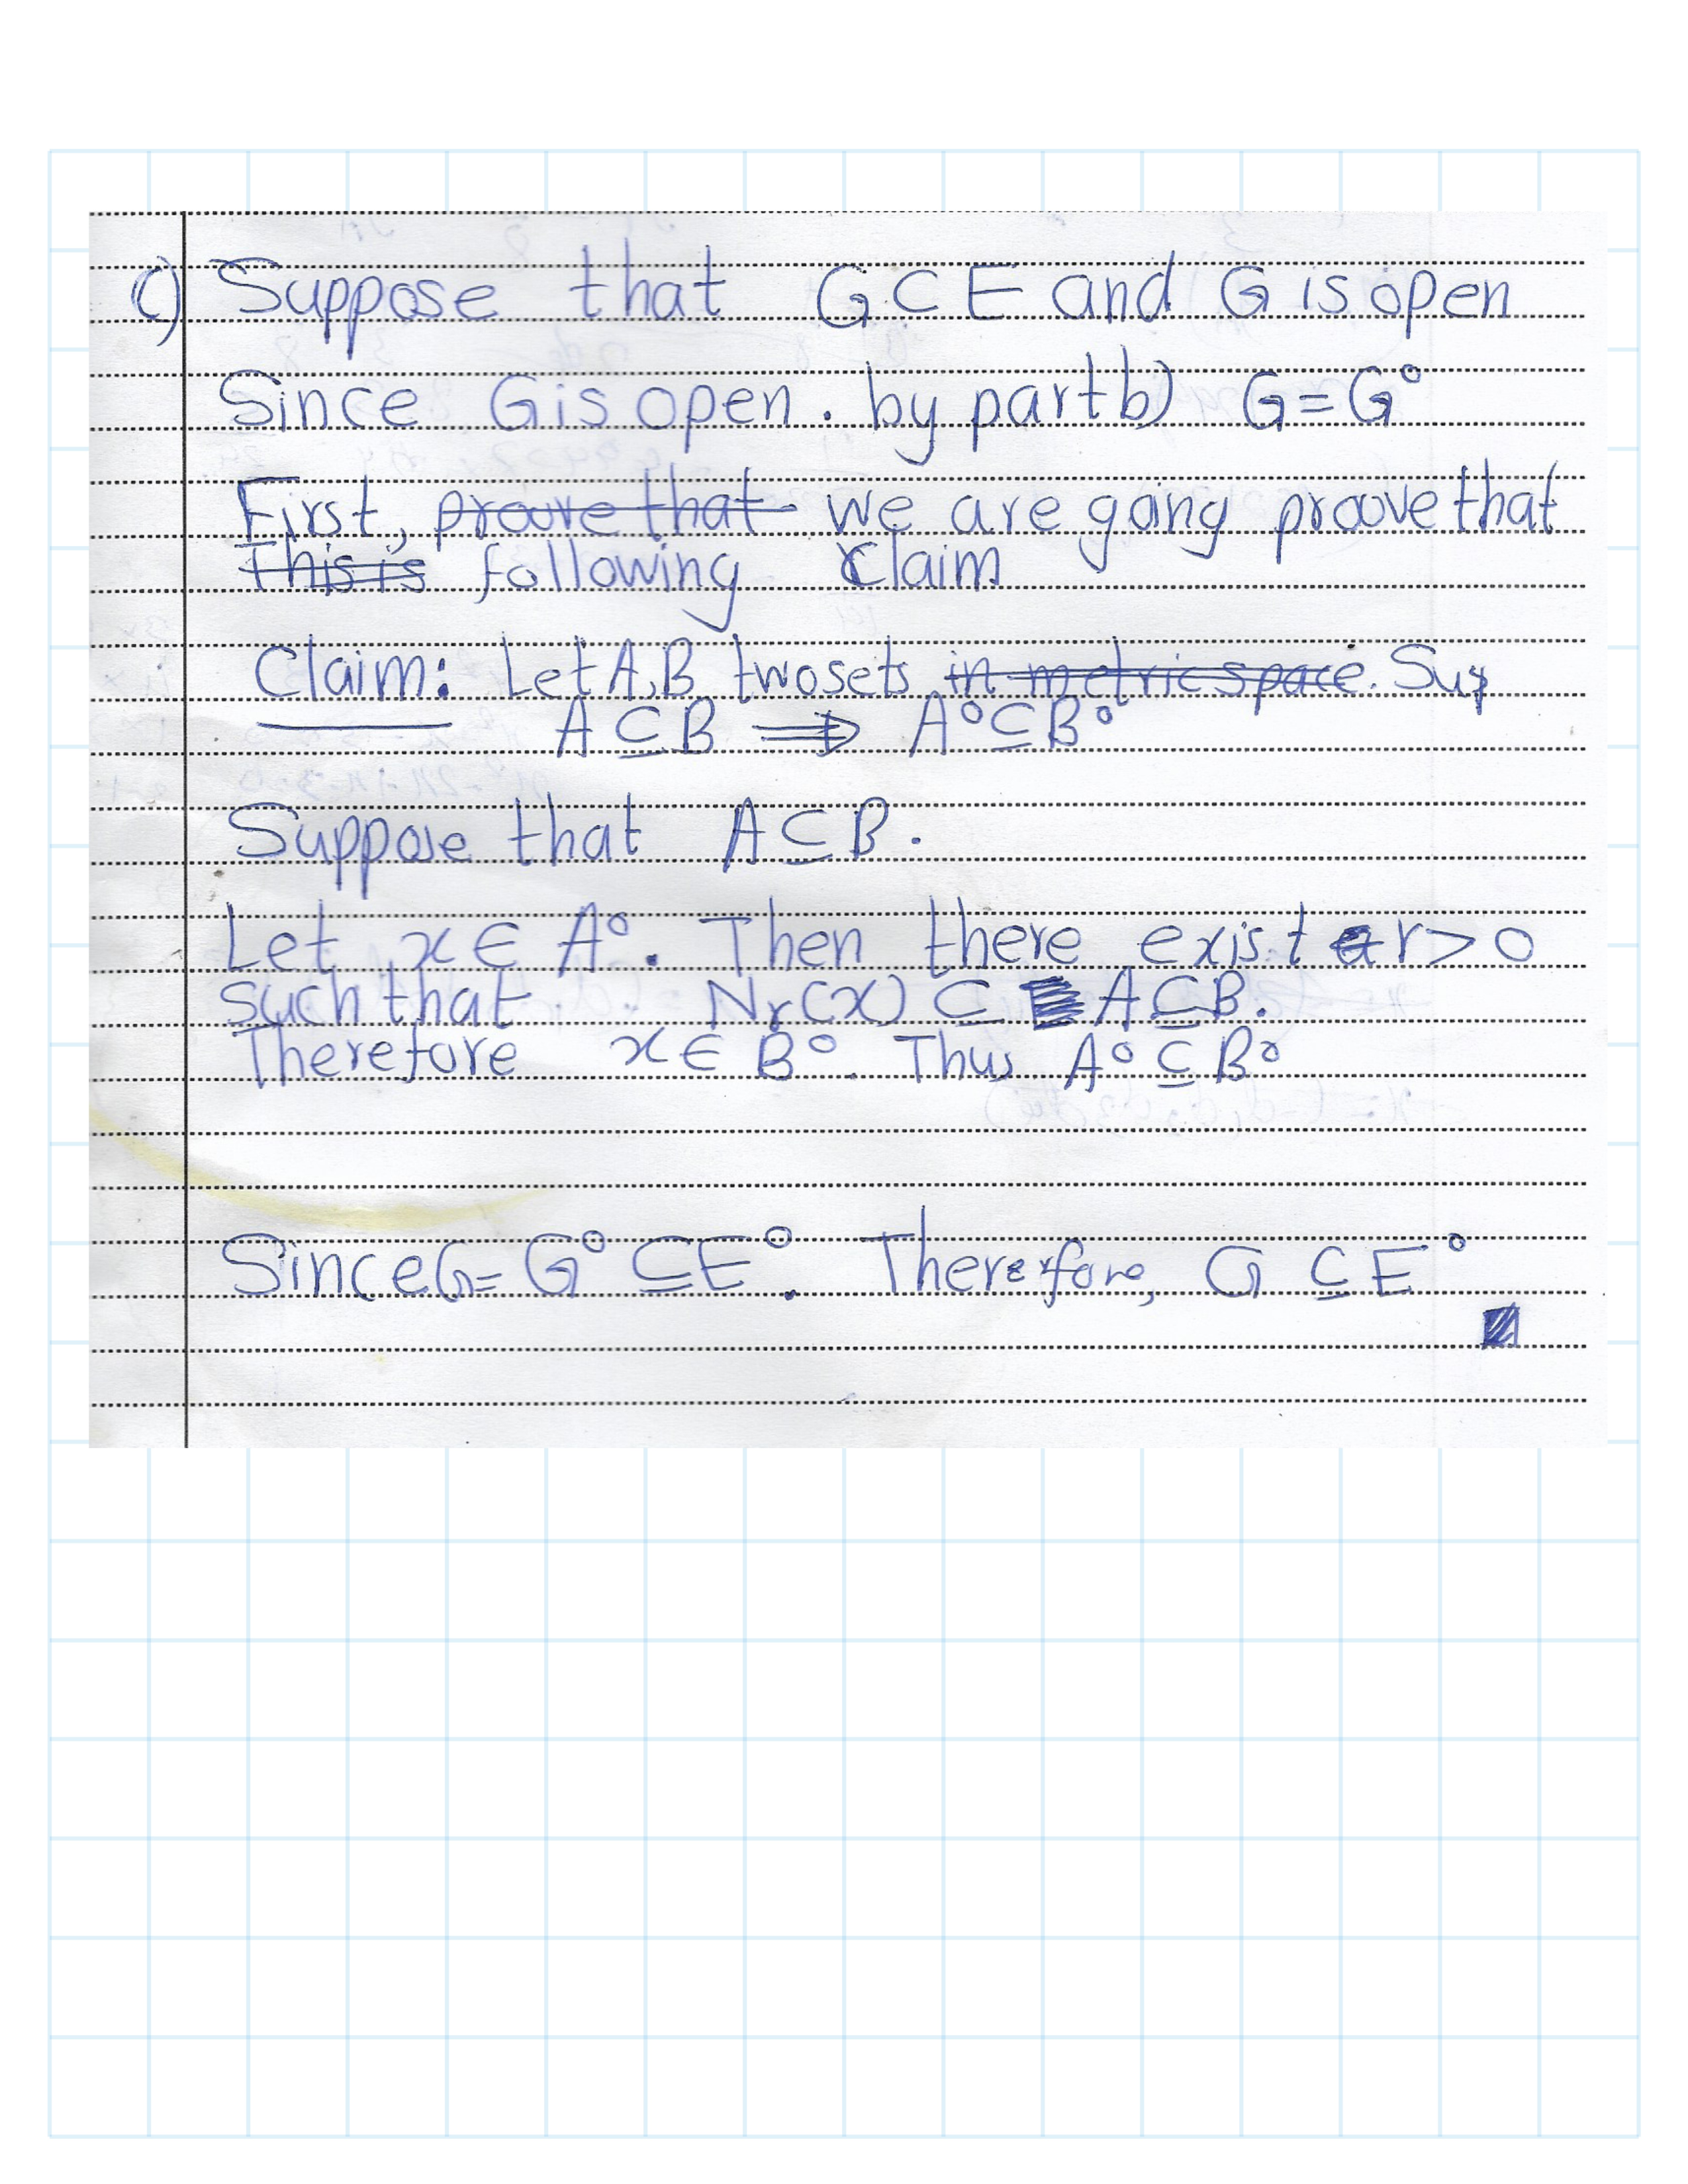 c) Suppose that G ⊂ E and G is open
Since G is open. by part b) G = G°
First, ~~proove that~~ we are going proove that
~~This is~~ following claim
Claim: Let A,B two sets ~~in metric space~~. Sup
A ⊆ B ⟹ A° ⊆ B°
Suppose that A ⊆ B.
Let x ∈ A°. Then there exist r > 0
such that Nr(x) ⊆ A ⊆ B.
Therefore x ∈ B°. Thus A° ⊆ B°
Since G = G° ⊆ E°. Therefore, G ⊆ E°